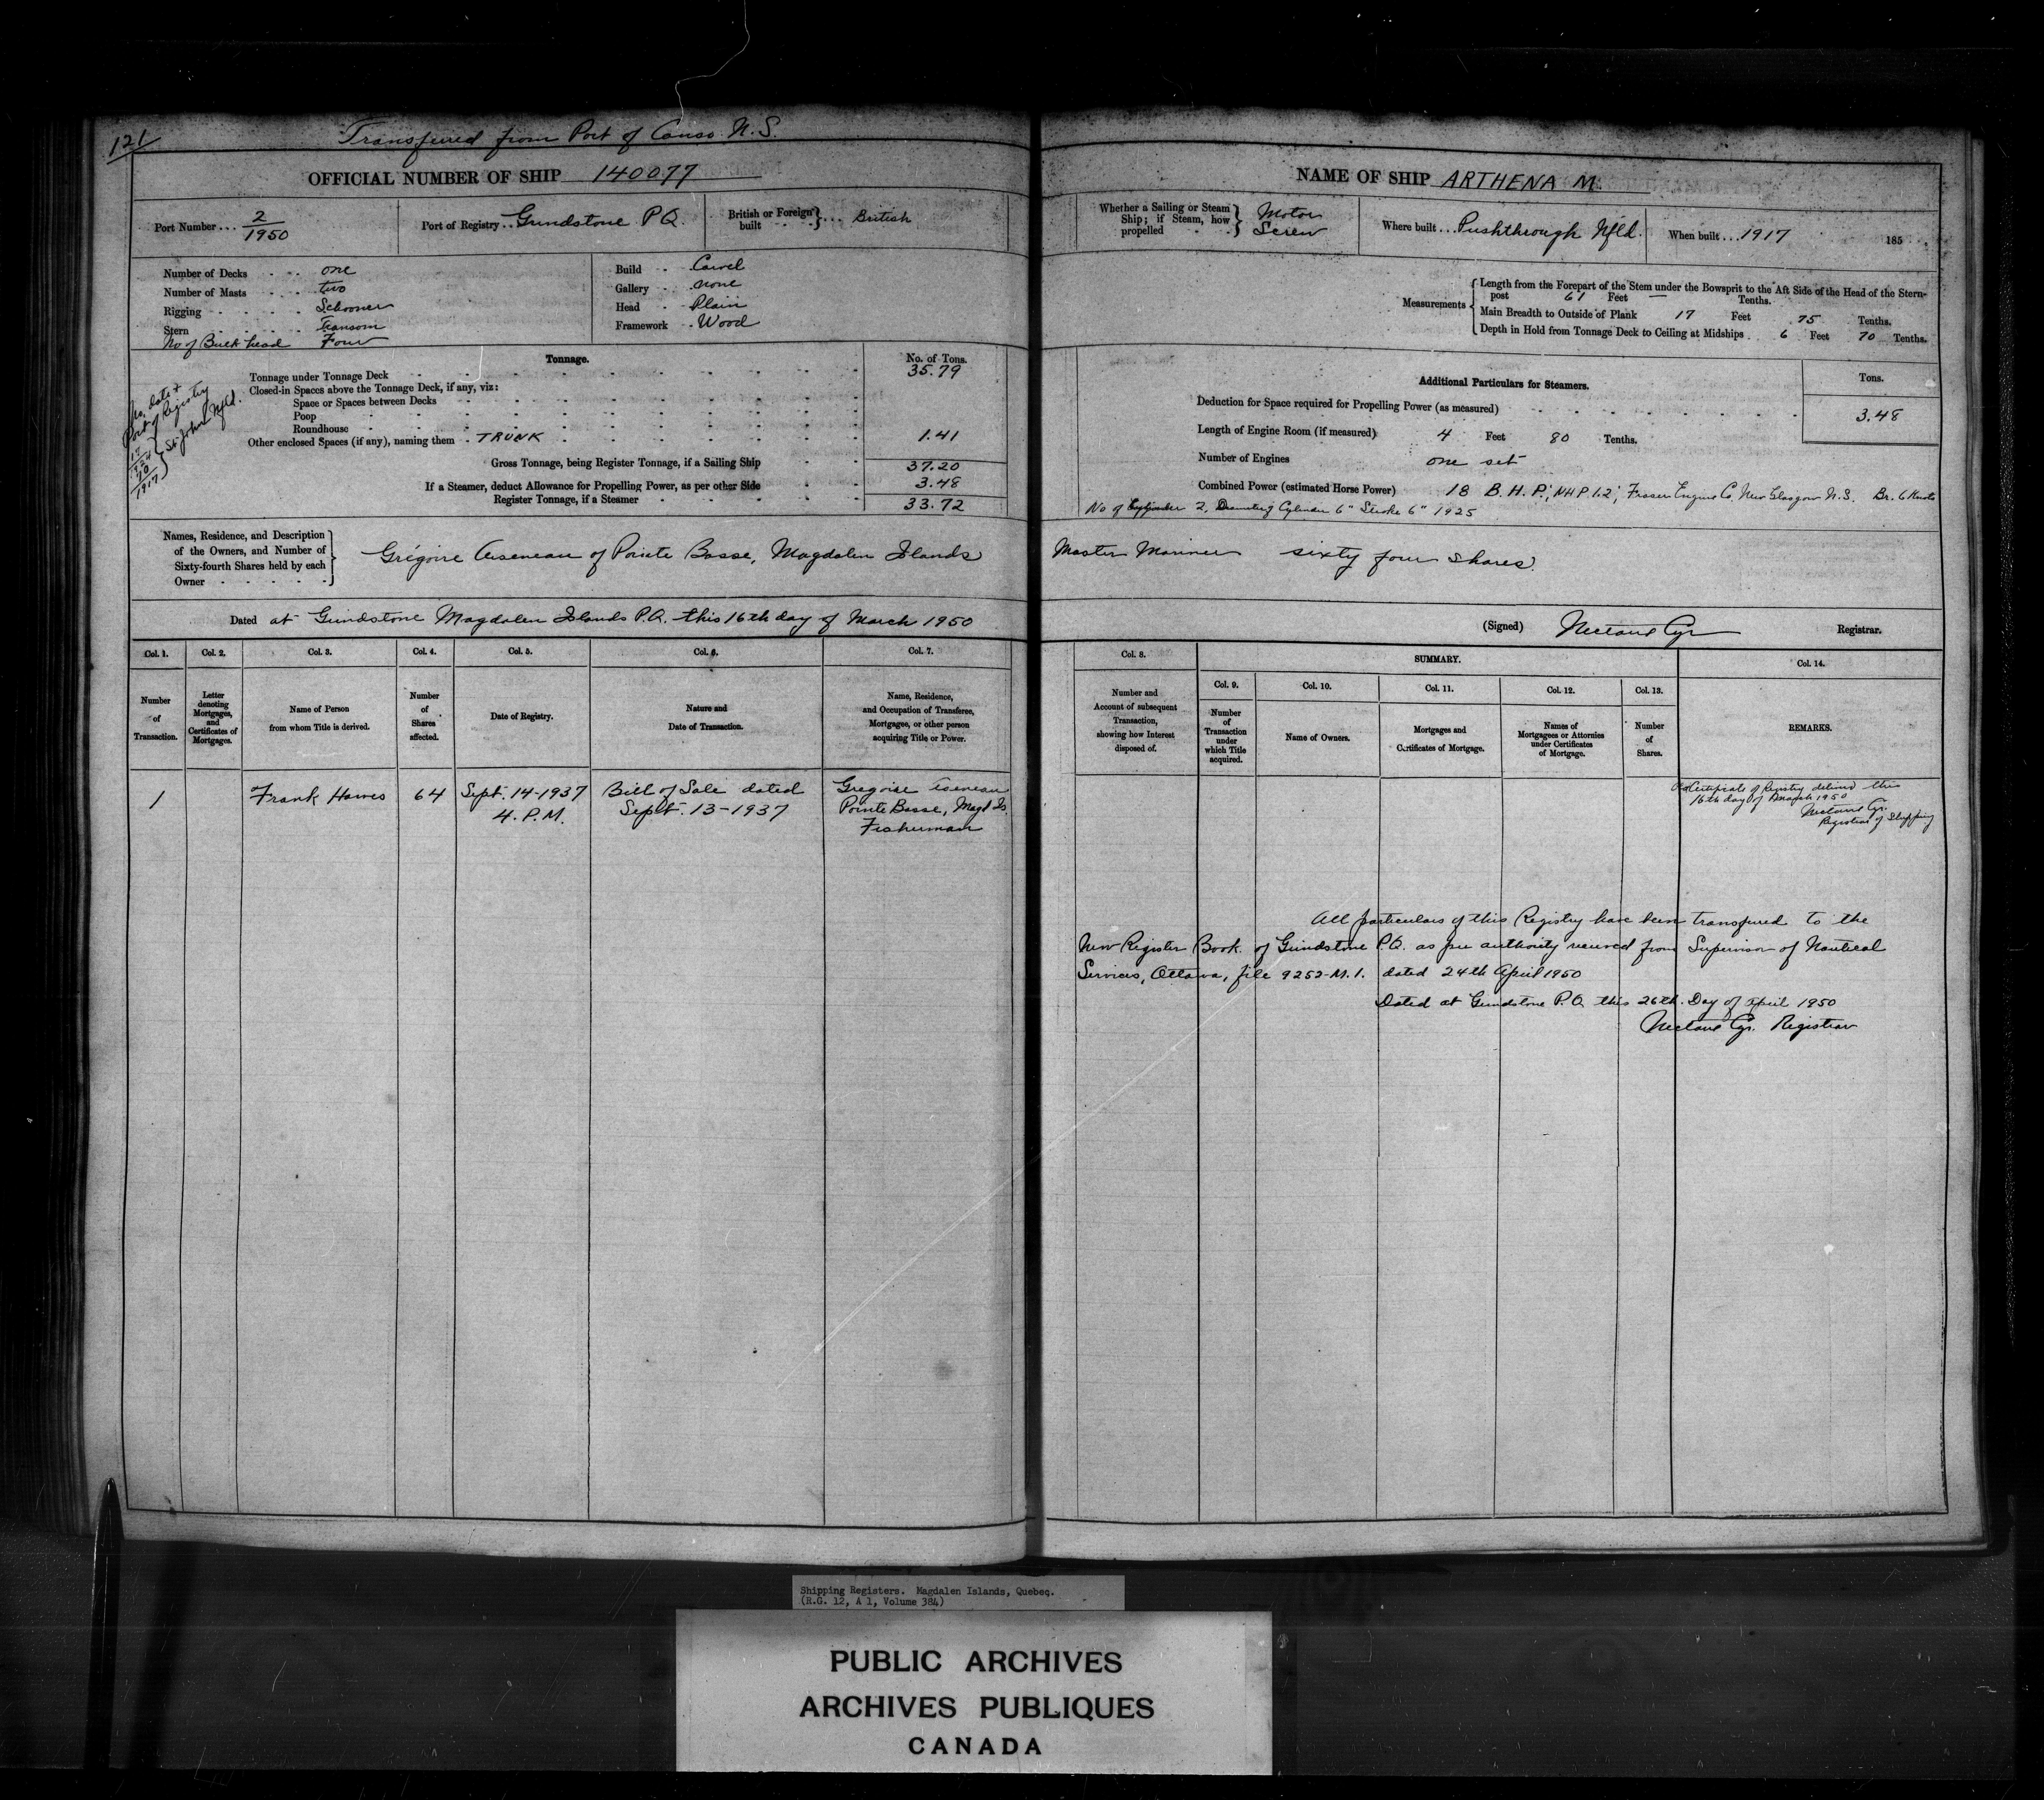 121
Transferred from Port of Canso N.S.
OFFICIAL NUMBER OF SHIP 140077
Port Number... 2/1950
Port of Registry.. Grindstone P.Q.
British or Foreign built }... British
Number of Decks one
Number of Masts two
Rigging Schooner
Stern Transom
No of Bulk head Four
Build Carvel
Gallery none
Head Plain
Framework Wood
No, date + Port of Registry
St. John's Nfld.
1917
Tonnage. No. of Tons.
Tonnage under Tonnage Deck 35.79
Closed-in Spaces above the Tonnage Deck, if any, viz:
Space or Spaces between Decks
Poop
Roundhouse
Other enclosed Spaces (if any), naming them TRUNK 1.41
Gross Tonnage, being Register Tonnage, if a Sailing Ship 37.20
If a Steamer, deduct Allowance for Propelling Power, as per other Side 3.48
Register Tonnage, if a Steamer 33.72
Names, Residence, and Description
of the Owners, and Number of
Sixty-fourth Shares held by each
Owner
Grégoire Arseneau of Pointe Basse, Magdalen Islands
Dated at Grindstone Magdalen Islands P.Q. this 16th day of March 1950
Col. 1. Col. 2. Col. 3. Col. 4. Col. 5. Col. 6. Col. 7.
Number of Transaction.
Letter denoting Mortgages, and Certificates of Mortgages.
Name of Person from whom Title is derived.
Number of Shares affected.
Date of Registry.
Nature and Date of Transaction.
Name, Residence, and Occupation of Transferee, Mortgagee, or other person acquiring Title or Power.
1 Frank Hawes 64 Sept. 14-1937 Bill of Sale dated Gregoire Arseneau
4. P.M. Sept. 13-1937 Pointe Basse, Magd Is.
Fisherman
NAME OF SHIP ARTHENA M.
Whether a Sailing or Steam Ship; if Steam, how propelled } Motor Screw
Where built... Pushthrough Nfld.
When built... 1917 185
Measurements
Length from the Forepart of the Stem under the Bowsprit to the Aft Side of the Head of the Stern-
post 61 Feet — Tenths.
Main Breadth to Outside of Plank 17 Feet 75 Tenths.
Depth in Hold from Tonnage Deck to Ceiling at Midships 6 Feet 70 Tenths.
Additional Particulars for Steamers. Tons.
Deduction for Space required for Propelling Power (as measured) 3.48
Length of Engine Room (if measured) 4 Feet 80 Tenths.
Number of Engines one set
Combined Power (estimated Horse Power) 18 B.H.P.; NHP 1.2; Fraser Engine Co. New Glasgow N.S. Br. 6 Knots
No of Cylinder 2, Diameter of Cylinder 6" Stroke 6" 1925
Master Mariner sixty four shares.
(Signed) Nectaire Cyr Registrar.
Col. 8. SUMMARY. Col. 14.
Col. 9. Col. 10. Col. 11. Col. 12. Col. 13.
Number and Account of subsequent Transaction, showing how Interest disposed of.
Number of Transaction under which Title acquired.
Name of Owners.
Mortgages and Certificates of Mortgage.
Names of Mortgagees or Attornies under Certificates of Mortgage.
Number of Shares.
REMARKS.
Certificate of Registry delivered this
16th day of March 1950
Nectaire Cyr.
Registrar of Shipping
All particulars of this Registry have been transferred to the
New Register Book of Grindstone P.Q. as per authority received from Supervisor of Nautical
Services, Ottawa, file 9252-M.1. dated 24th April 1950
Dated at Grindstone P.Q. this 26th. Day of April 1950
Nectaire Cyr. Registrar
Shipping Registers. Magdalen Islands, Quebec.
(R.G. 12, A 1, Volume 384)
PUBLIC ARCHIVES
ARCHIVES PUBLIQUES
CANADA